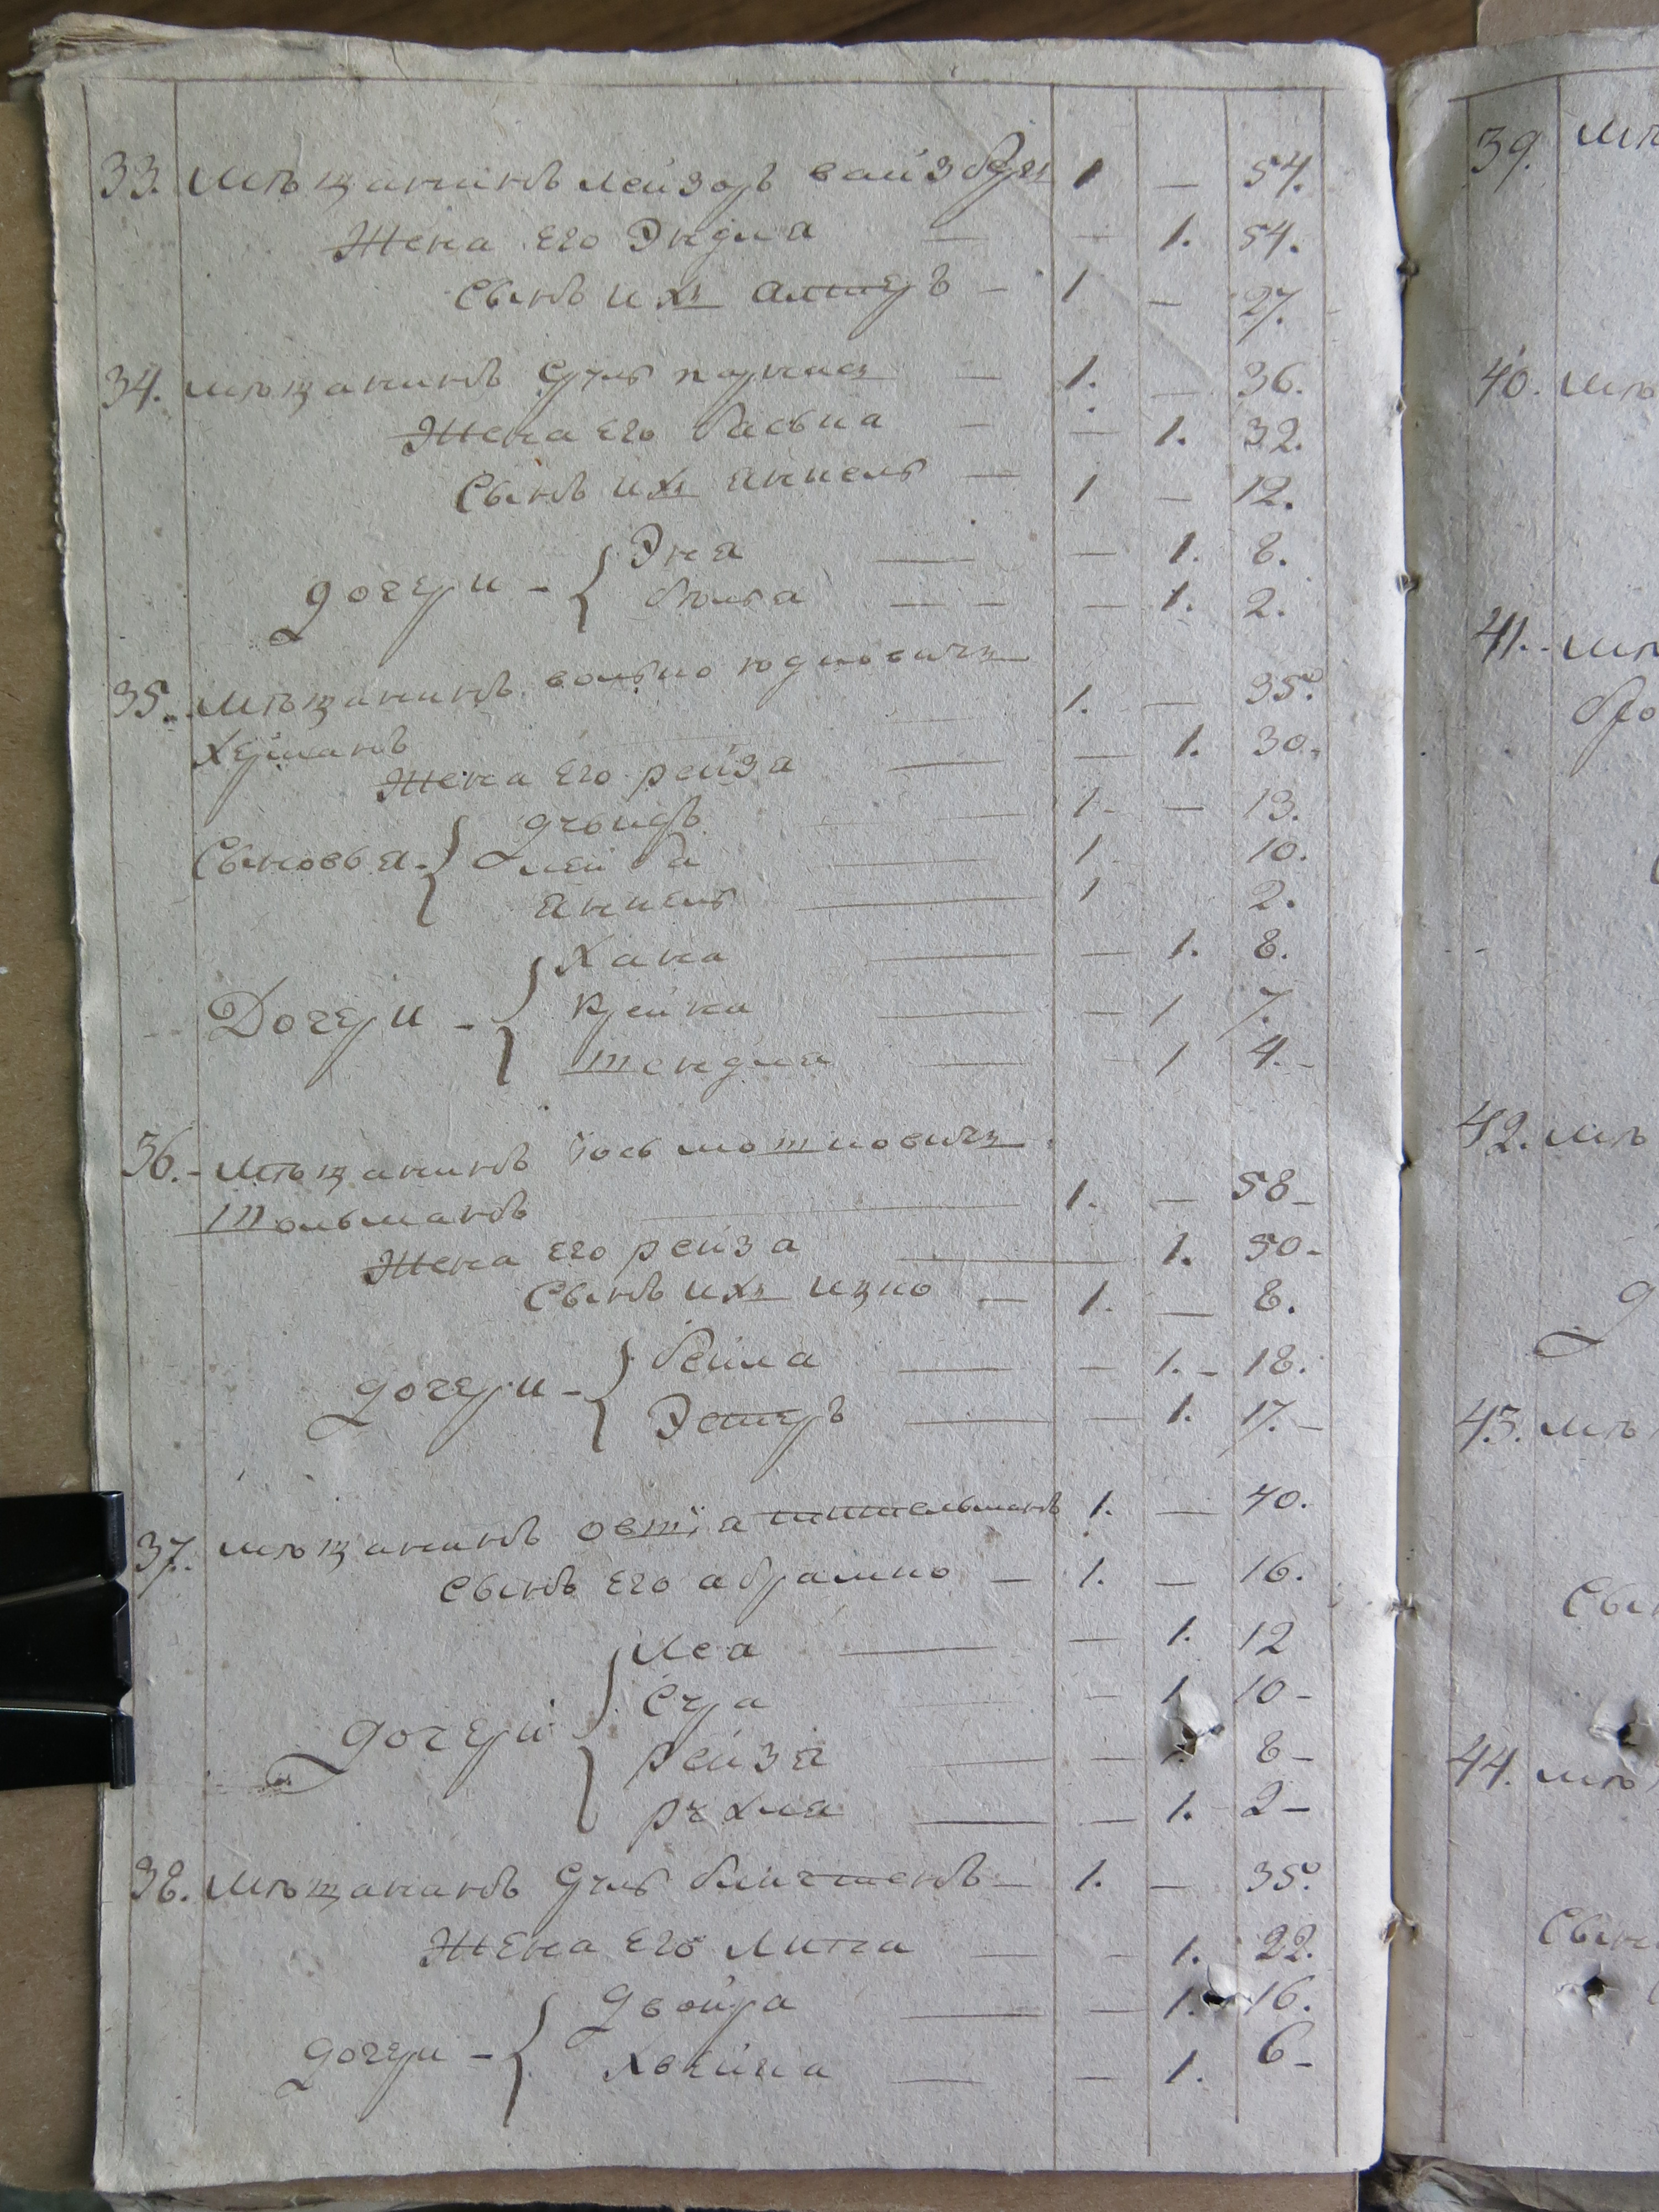 33. Мѣщанинъ Лейзоръ Вайзбергъ 1 — 54.
Жена его Эндля — — 1. 54.
Сынъ ихъ Алтеръ — 1 — 27.
34. Мѣщанинъ Сруль — 1. — 36.
Жена его Басьпа — — 1. 32.
Сынъ ихъ Янкель — 1 — 12.
дочери — { Эня — — 1. 8.
— — — 1. 2.
35. Мѣщанинъ Волько Юдковичъ
1. — 35.
Херманъ
Жена его Рейза — — 1. 30.
Сыновья { Дувидъ — 1. — 13.
Лейба — 1 10.
Янкель — 1 2.
Дочери — { Хана — — 1. 8.
Крейна — — 1 7.
Шендля — — 1 4. -
36. - Мѣщанинъ Іось Мошковичъ
Тольманъ — 1. — 58 -
Жена его Рейза — 1. 50 -
Сынъ ихъ Ицко — 1. — 8.
дочери — { Бейла — — 1. - 18.
Эстеръ — — 1. 17. -
37. Мѣщанинъ Овшія 1. — 40.
Сынъ его Абрамко — 1. — 16.
дочери { Лея — — 1. 12
Сура — 1 10 -
Рейза — — 8 -
Рухля — — 1. 2 -
38. Мѣщанинъ Сруль — 1. — 35.
Жена его — - 1. 22.
дочери — { Двойра — — 1. 16.
— — 1. 6 -
39. Мѣ
40. Мѣ
41. - Мѣ
42. Мѣ
43. Мѣ
Сын
44. Мѣ
Сын